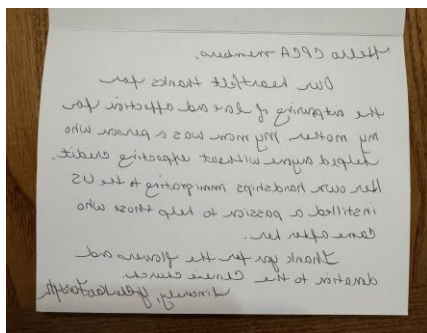 Hello CPCA members,
Our heartfelt thanks for
the outpouring of love and affection for
my mother. My mom was a person who
helped anyone without expecting credit.
Her own hardships immigrating to the US
instilled a passion to help those who
came after her.
Thank you for the flowers and
donation to the Chinese church.
Sincerely,